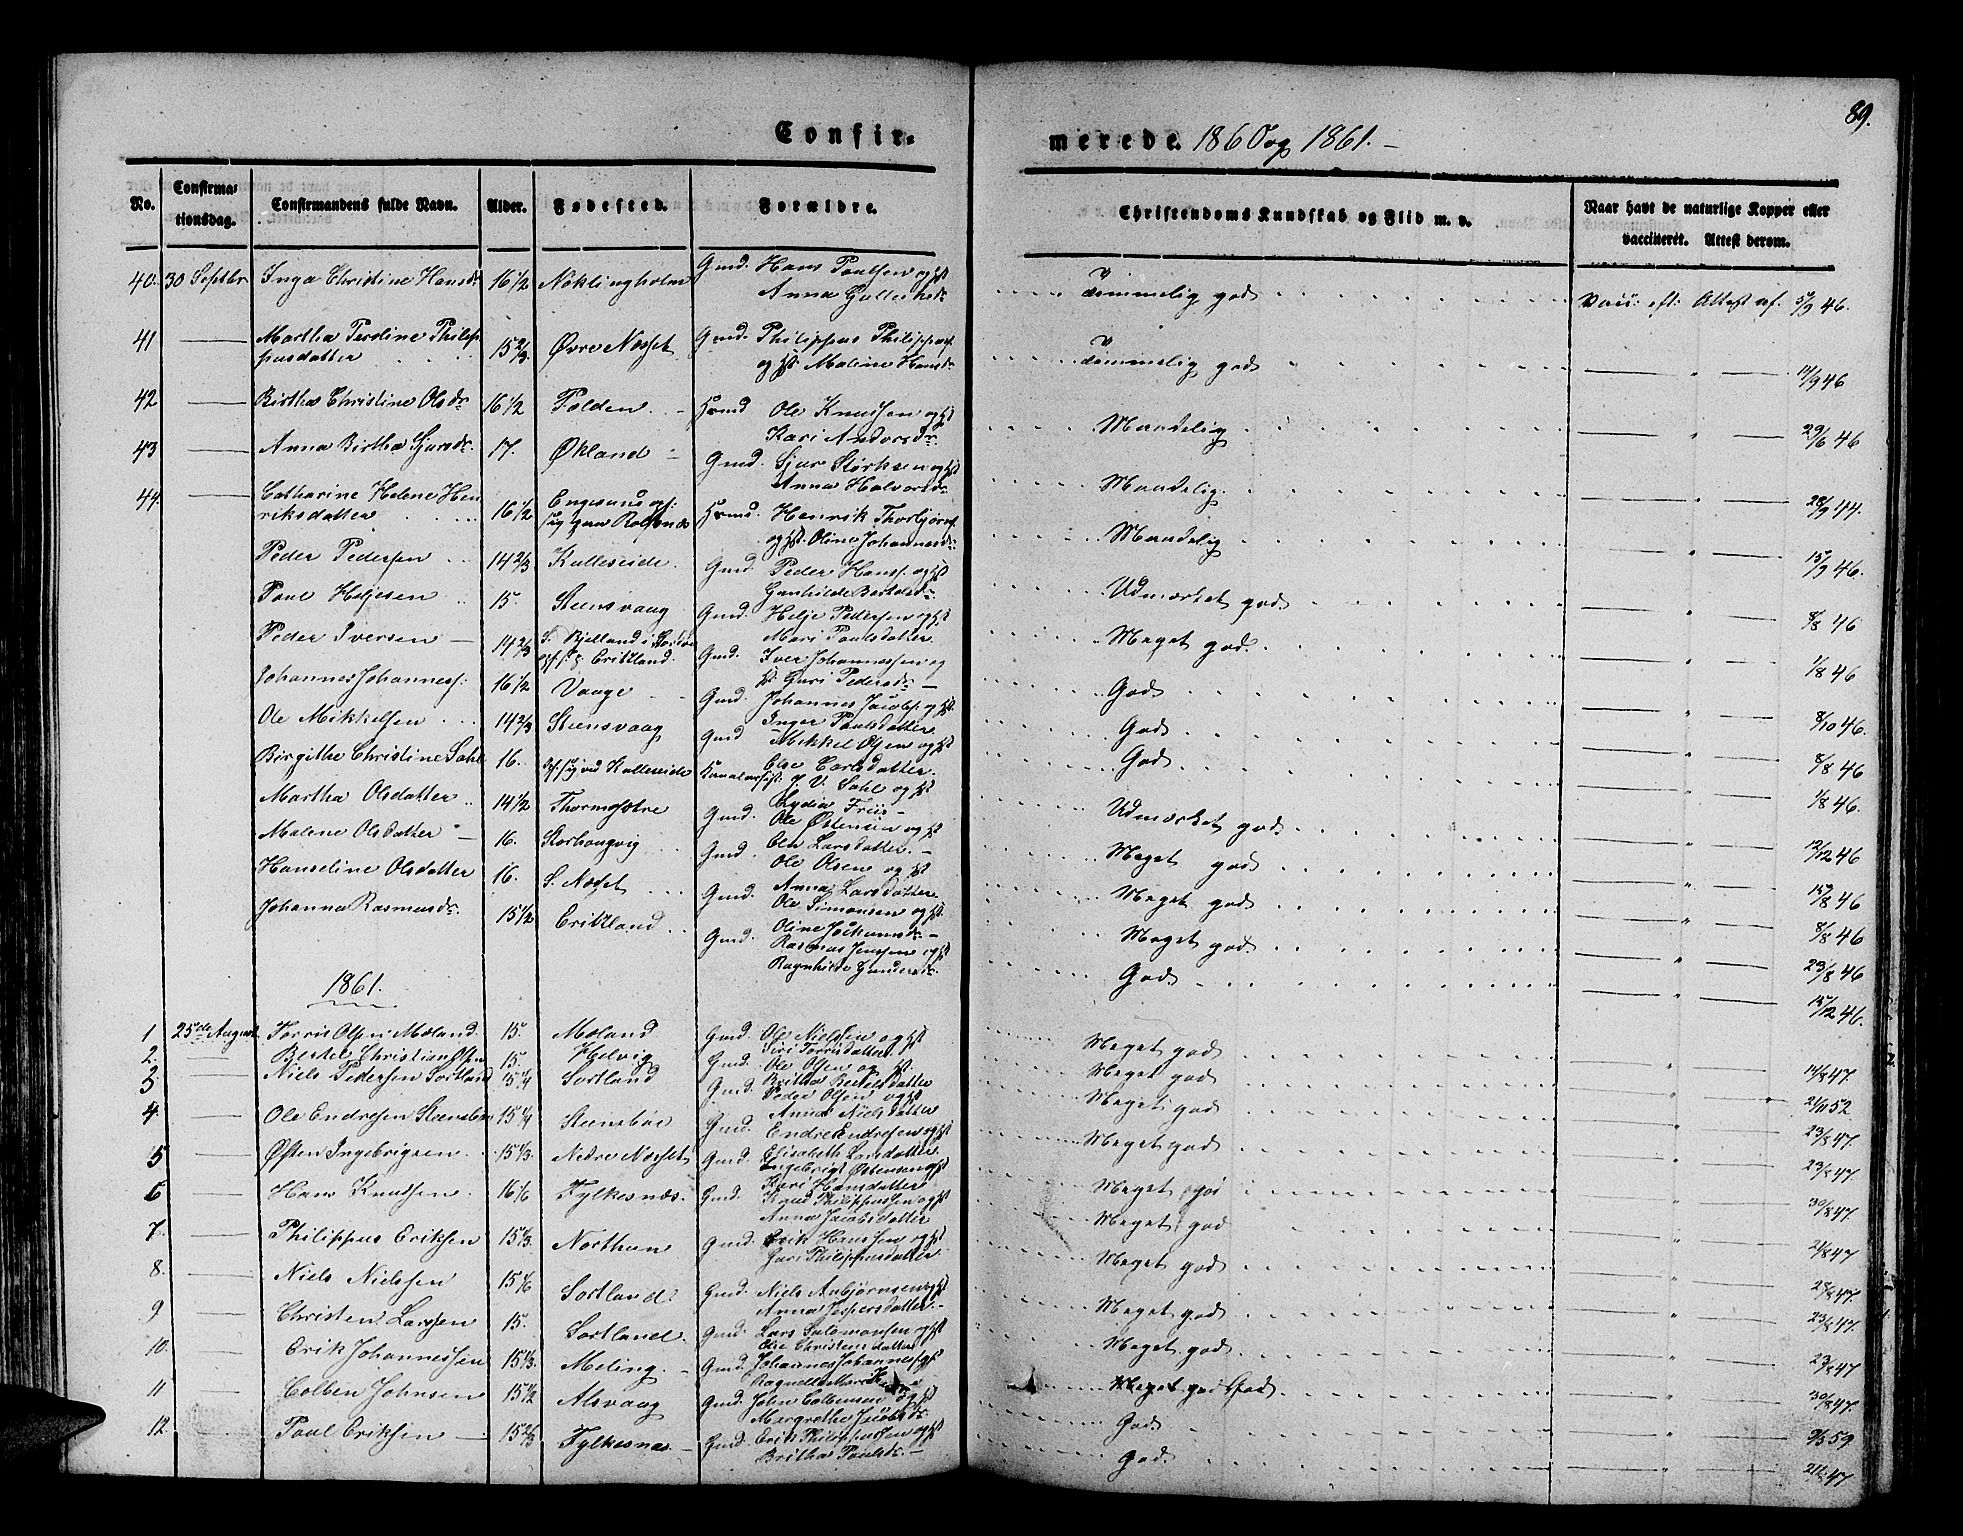 89.
Confir-
merede. 1860 og 1861.
No.
Confirma-
tionsdag.
Confirmandens fulde Navn.
Alder.
Fødested.
Forældre.
Christendoms Kundskab og Flid m. v.
Naar havt de naturlige Kopper eller
vaccineret. Attest derom.
40. 30 Septbr Inga Christine Hansdr 16 1/2 Nøklingholm Gmd. Hans Paulsen og H
Anna
Temmelig god Vacc: eft: Attest af 5/9 46.
41 Martha Philip
pusdatter 15 2/3 Øvre Næsset Gmd. Philippus
og H. Malene Hansdr
Temmelig god 14/9 46
42 Birtha Christine Olsdr 16 1/2 Folden Hmd Ole Knutsen og H
Kari Andersdr
Maadelig 29/6 46
43 Anna Birtha Sjursdr. 17. Økland Gmd. Sjur Størksen og H
Anna Halvorsdr
Maadelig 28/9 44.
44. Catharine Helene Hen
riksdatter 16 1/2 Hmd. Henrik
og H. Oline Johannesdr
Maadelig 15/9 46.
Peder Pedersen 14 2/3 Kulleseide Gmd. Peder Hanss. og H
Gunhilde
Udmærket god 8/8 46
Paul Heljesen 15 Steensvaag Gmd. Helje Pedersen og H
Mari Paulsdatter
Meget god 1/8 46
Peder Iversen 14 2/3 Bjelland i
Eritzland. Gmd. Iver Johannessen og
H. Guri Pedersdr
God 8/10 46.
Johannes Johanness: 16 1/2 Vaage Gmd. Johannes Jacobs. og H.
Inger Paulsdatter
God 8/8 46
Ole Mikkelsen 14 2/3 Steensvaag Gmd Mikkel Olsen og H
Else Carlsdatter.
God 1/8 46.
Birgithe Christine Sahl 16. Kulleseide J. V. Sahl og H
Lydia Friis
Udmærket god 12/12 46
Martha Olsdatter 14 1/2 Thormosætre Gmd. Ole Østensen og H
Larsdatter.
Meget god 15/8 46
Malene Olsdatter 16. Storhougvig Gmd. Ole Olsen og H
Anna Larsdatter
Meget god 8/8 46
Hanseline Olsdatter 16. S. Næset Gmd. Ole Simonsen og H
Oline
Meget god 23/8 46
Johanna Rasmusdr. 15 1/2 Eritzland Gmd. Rasmus Jenssen og H
Ragnhilde Gundersdr.
God 15/12 46.
1861.
1 25de August Torris Olsen Mæland 15. Mæland Gmd. Ole Nielssen og H
Siri Torrisdatter
Meget god 47.
2. Bertel Christian Olsen 15 Helvig Gmd. Ole Olsen og H.
Britha Bertelsdatter
Meget god 52
3. Niels Pedersen Sortland 15 1/4 Sortland Gmd. Peder Olsen og H
Anna Nielsdatter
Meget god 23/8 47.
4 Ole Endresen Steensbøe 15 1/4 Steensbøe Gmd. Endre Endresen og H
Elisabeth Larsdatter
Meget god 47.
5 Østen Ingebrigsen 15 1/3. Nedre Næsset Gmd. Ingebrigt Østensen og H
Kari Hansdatter
Meget god 30/8 47.
6 Hans Knutsen 16 1/6 Fylkesnæs. Gmd. Knud Philippussen og H
Anna Jacobsdatter
Meget god 47
7. Philippus Eriksen 15 1/3. Northun Gmd. Erik Hanssen og H
Guri Philippusdatter
Meget god 47.
8. Niels Nielssen 15 1/6 Sortland Gmd. Niels Asbjørnsen og H
Anna Jespersdatter
Meget god 23/8 47.
9 Christen Larssen 15. Sortland. Gmd. Lars Salomonsen og H
Else Christensdatter
Meget god 47
10. Erik Johannessen 15 1/3. Meling. Gmd. Johannes Johannes. og H
Meget god God 30/8 47.
11 Colben Johnsen 15 1/2 Alsvaag Gmd. John Colbensen og H
Margrethe Jacobsdr.
God 59
12. Paul Eriksen 15 2/3 Fylkesnæs Gmd. Erik Philippussen og H
Britha Paulsdr.
God. 47